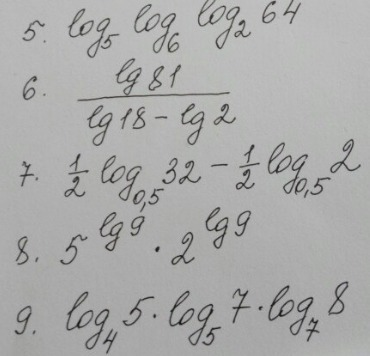 5. log₅ log₆ log₂ 64
6. lg 81 / (lg 18 − lg 2)
7. 1/2 log₀,₅ 32 − 1/2 log₀,₅ 2
8. 5^(lg 9) · 2^(lg 9)
9. log₄ 5 · log₅ 7 · log₇ 8